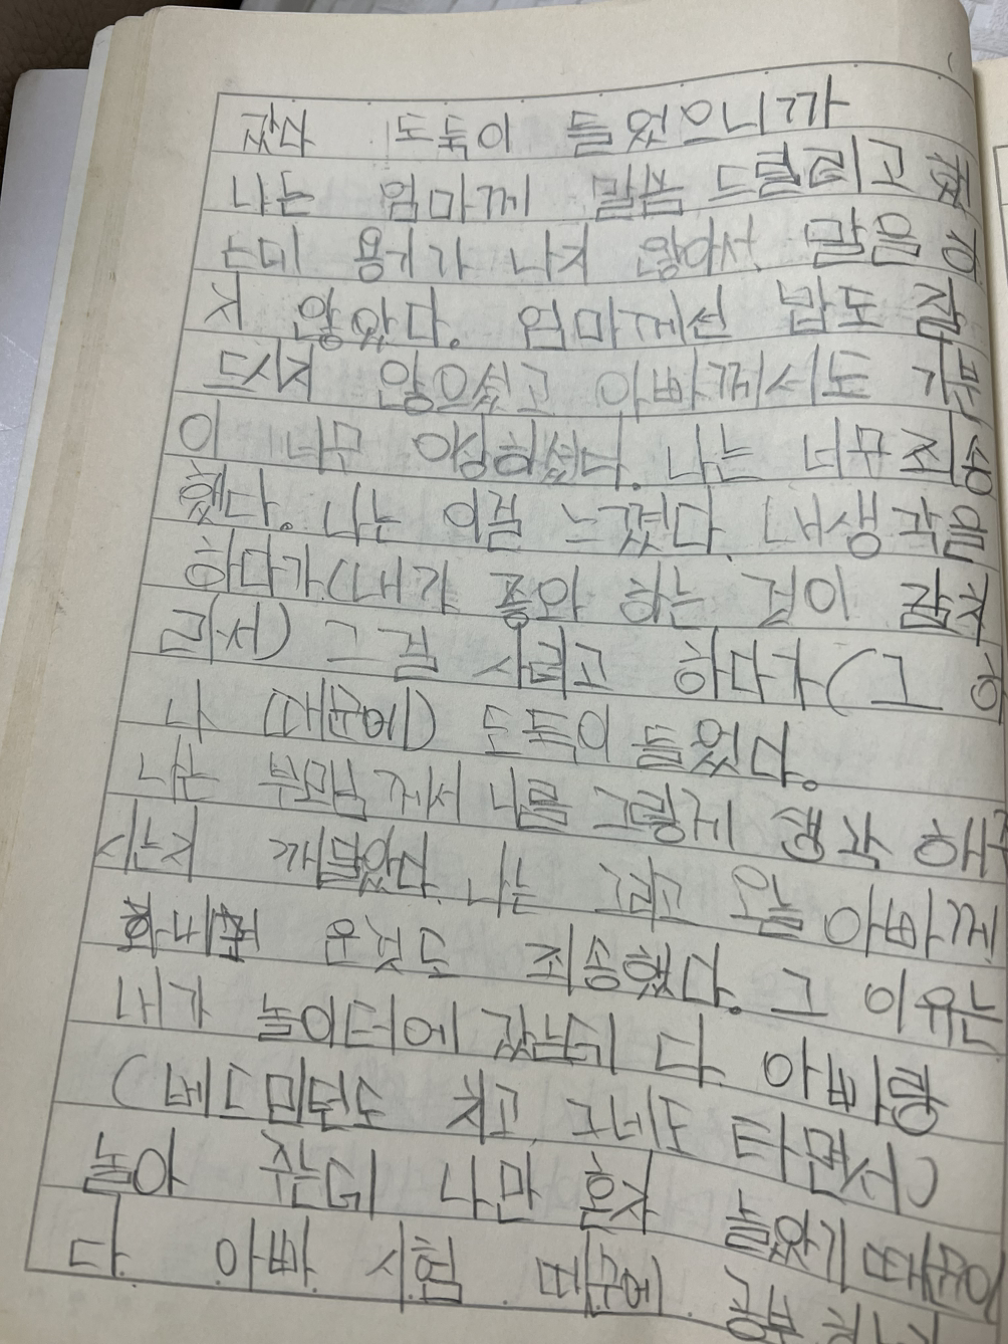 갔다 도둑이 들었으니까
나는 엄마께 말씀 드릴려고 했
는데 용기가 나지 않아서 말을 하
지 않았다. 엄마께선 밥도 잘
드시지 않으셨고 아빠께서도 기분
이 너무 이상하셨다. 나는 너무 죄송
했다. 나는 이걸 느꼈다. 내 생각을
하다가(내가 좋아 하는 것이 팔찌
라서) 그걸 사려고 하다가(그 하
나 때문에) 도둑이 들었다.
나는 부모님께서 나를 그렇게 생각 해주
시는지 깨달았다. 나는 그리고 오늘 아빠께
화내 온것도 죄송했다. 그 이유는
내가 놀이터에 갔는데 다 아빠랑
(베드민턴도 치고 그네도 타면서)
놀아 주는데 나만 혼자 놀았기 때문이
다. 아빠 시험 때문에 공부 하니